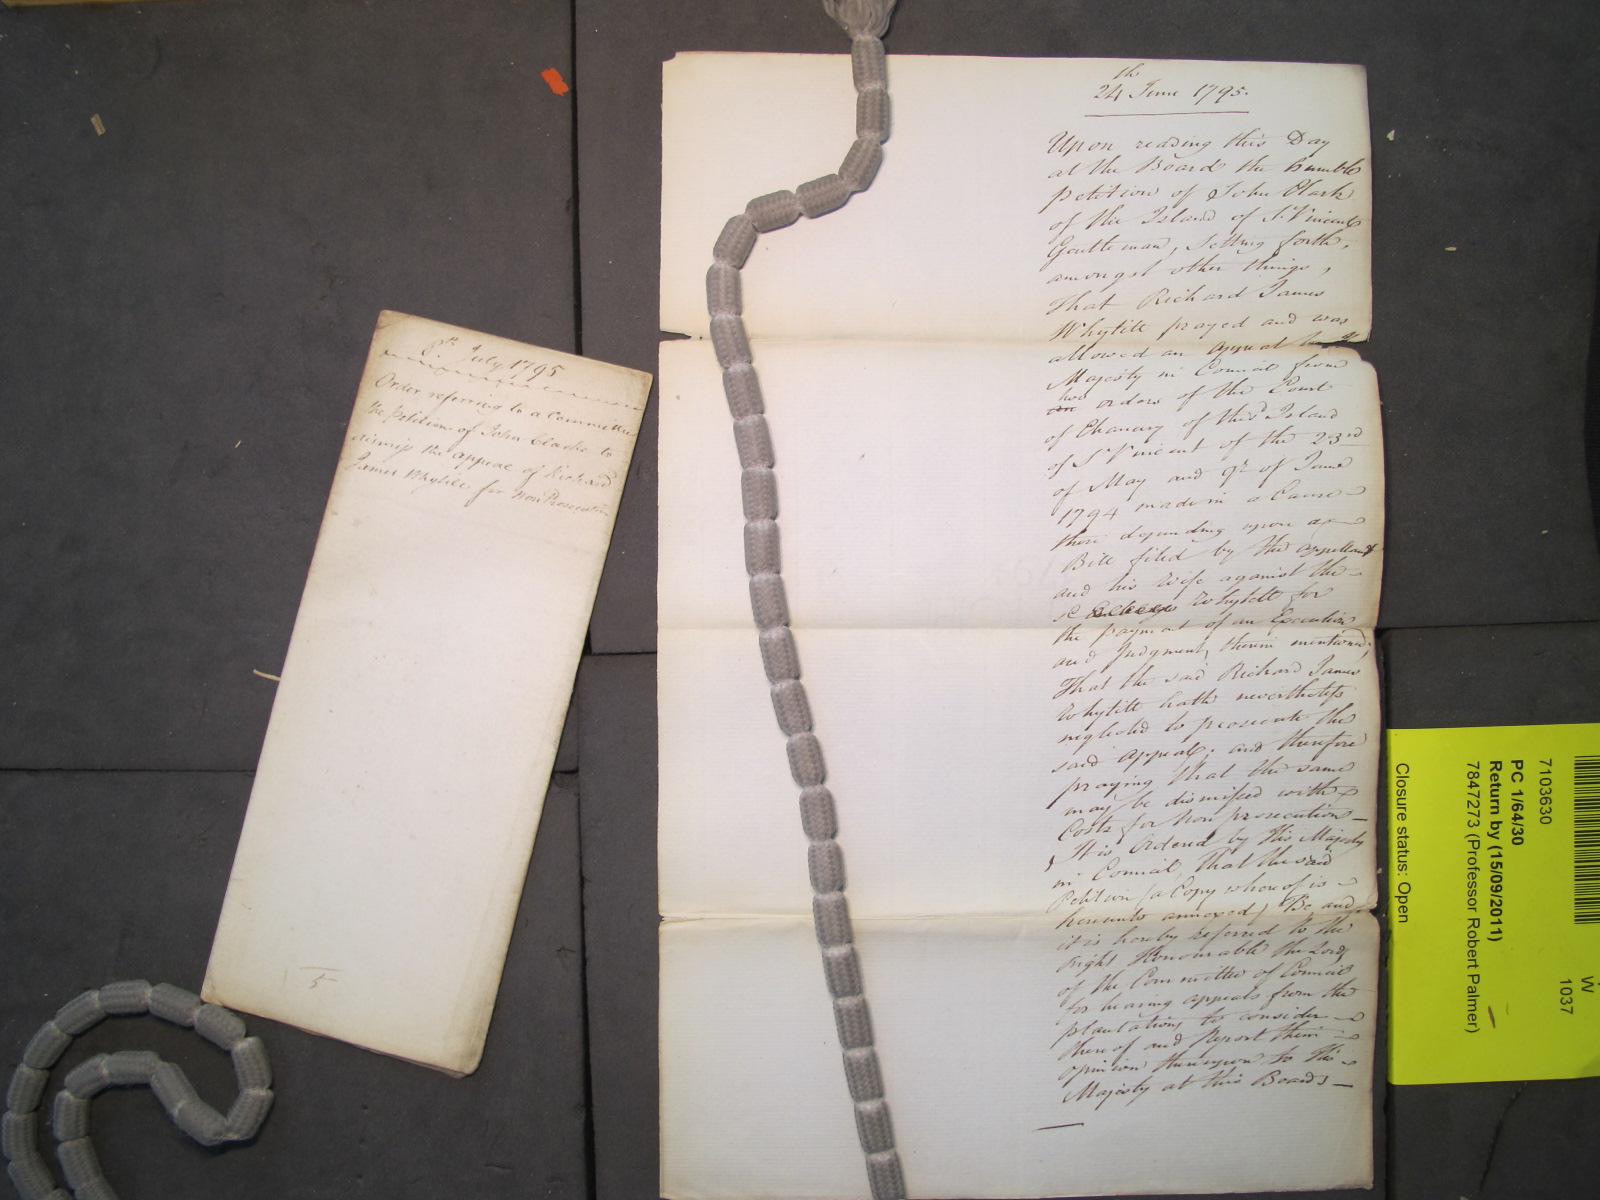 8th July 1795
Order referring to a Committee
the Petition of John Clarke to
dismiss the appeal of Richard
James Whytell for Non Prosecution
5
24th June 1795.
Upon reading this Day
at the Board the humble
petition of John Clark
of the Island of St. Vincent
Gentleman, Setting forth,
amongst other things,
That Richard James
Whytell prayed and was
allowed an Appeal to
Majesty in Council from
two
orders of the Court
of Chancery of this Island
of St Vincent of the 23rd
of May and 9th of June
1794 made in a Cause
there depending upon a
Bill filed by the appellant
and his Wife against the
Whytell for
the payment of an Execution
and Judgment therein mentioned;
That the said Richard James
Whytell hath nevertheless
neglected to prosecute the
said appeal; and therefore
praying that the same
may be dismissed with
Costs for Non prosecution—
It is Ordered by His Majesty
in Council, that the said
Petition (a Copy whereof is
hereunto annexed) Be and
it is hereby referred to the
Right Honourable the Lords
of the Committee of Council
for hearing appeals from the
plantations to consider
thereof and Report their
opinion thereupon to His
Majesty at this Board—
7103630
PC 1/64/30
Return by (15/09/2011)
7847273 (Professor Robert Palmer)
Closure status: Open
W
1037